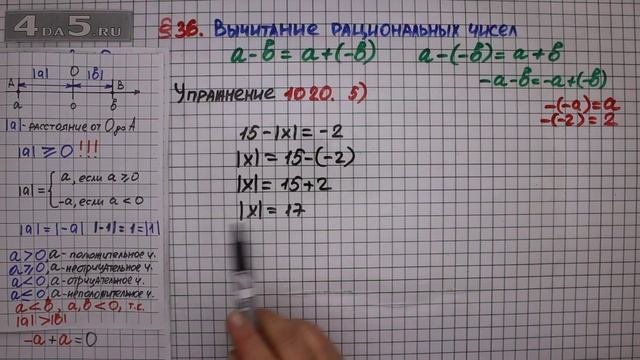 4DA5.RU
§ 36. Вычитание рациональных чисел
a-b = a+(-b)
a-(-b) = a+b
-a-b=-a+(-b)
-(-a)=a
-(-2)=2
Упражнение 1020. 5)
15-|x|=-2
|x|=15-(-2)
|x|=15+2
|x|=17
|a| 0 |b|
A B
a 0 b
|a|-расстояние от 0 до A
|a| ≥ 0 !!!
|a| = { a, если a ≥ 0
-a, если a < 0
|a|=|-a| |-1|=1=|1|
a>0, a- положительное ч.
a≥0, a-неотрицательное ч.
a<0, a-отрицательное ч.
a≤0, a-неположительное ч.
a<b, a,b<0, т.к.
|a|>|b|
-a+a=0